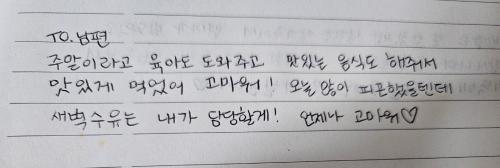 TO.남편
주말이라고 육아도 도와주고 맛있는 음식도 해줘서
맛있게 먹었어 고마워! 오늘 많이 피곤했을텐데
새벽수유는 내가 담당할게! 언제나 고마워♡